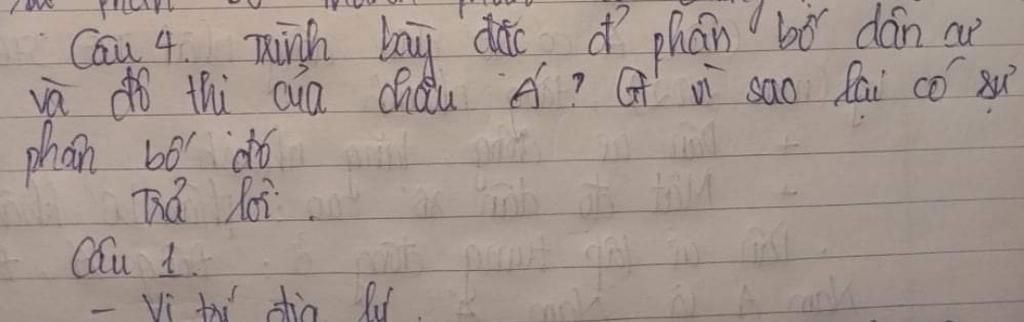 Câu 4. Trình bày đặc đ' phân bố dân cư
và đô thị của châu Á? GT vì sao lại có sự
phân bố đó
Trả lời.
Câu 1.
- Vị trí địa lý